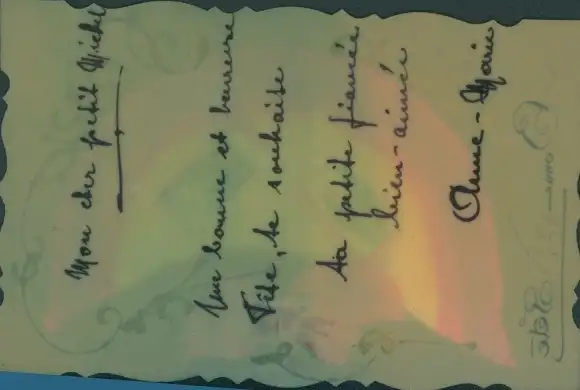 Mon cher petit Michel
Une bonne et heureuse
Fête, te souhaite
ta petite fiancée
bien-aimée
Anne-Marie